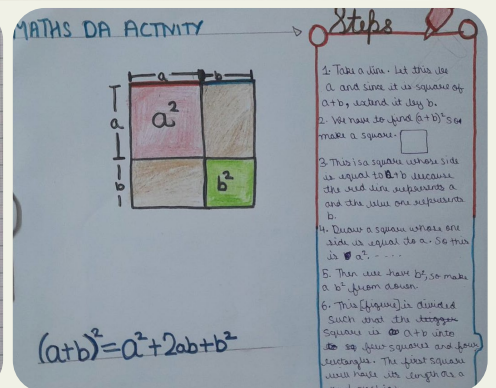 MATHS DA ACTIVITY
Steps
a
b
a
a²
b
b²
(a+b)²=a²+2ab+b²
1. Take a line. Let this be
a and since it is square of
a+b, extend it by b.
2. We have to find (a+b)² so
make a square.
3. This is a square whose side
is equal to a+b because
the red line represents a
and the blue one represents
b.
4. Draw a square whose one
side is equal to a. So this
is a².....
5. Then we have b², so make
a b² from down.
6. This [figure] is divided
such that the
square is a+b into
few squares and four
rectangles. The first square
will have its length as a